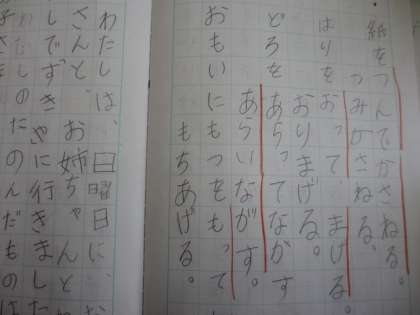 紙をつんでかさねる。
つみかさねる、
はりをおって、まげる。
おりまげる。
どろをあらってながす
あらいながす。
おもいにもつをもって
もちあげる。
わたしは、日曜日に、
さんと、お姉ちゃんと、
に行きました
のたのんだものは